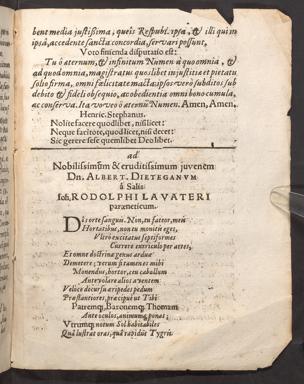 bent media justißima, queis Respubl. ipsa, & illi qui in
ipsa, accedente sancta concordia, servari possunt,
Voto finienda disputatio est:
Tu ô aternum, & infinitum Numen à quo omnia, &
ad quod omnia, magistratus quoslibet in justitia et pietatu
solio firma, omni fælicitate macta: ipsos verò subditos su
debito & fideli obsequio, ac obedientia omni bono cumula,
ac conserva. Ita voveo ô aternũ Numen. Amen, Amen.
Henric. Stephanus.
Nolite facere quodlibet, nisi licet:
Neque facitote, quod licet, nisi decet:
Sic gerere sese quemlibet Deo libet.
ad
Nobilissimum & eruditissimum juvenem
Dn. ALBERT. DIETEGANUM
à Salis
Joh. RODOLPHI LAVATERI
paræneticum.
DIs orte sanguis. Non, tu fateor, meis
Hortatibus, non tu monitis eges,
Vltrò excitatus septiformes
Currere curriculo per artes,
Et omne doctrinæ genus arduæ
Demetere; verum si tamen es mihi
Monendus, hortor, ceu caballum
Antevolare alios aventem
Veloce decursu aripedes pedum
Præstantiores, præcipuè ut Tibi
Patremq;, Baronemq; Thomam
Ante oculos, animumq; ponas;
Vtrumq; notum Sol habitabiles
Quà lustrat oras, quà rapidus Tygris